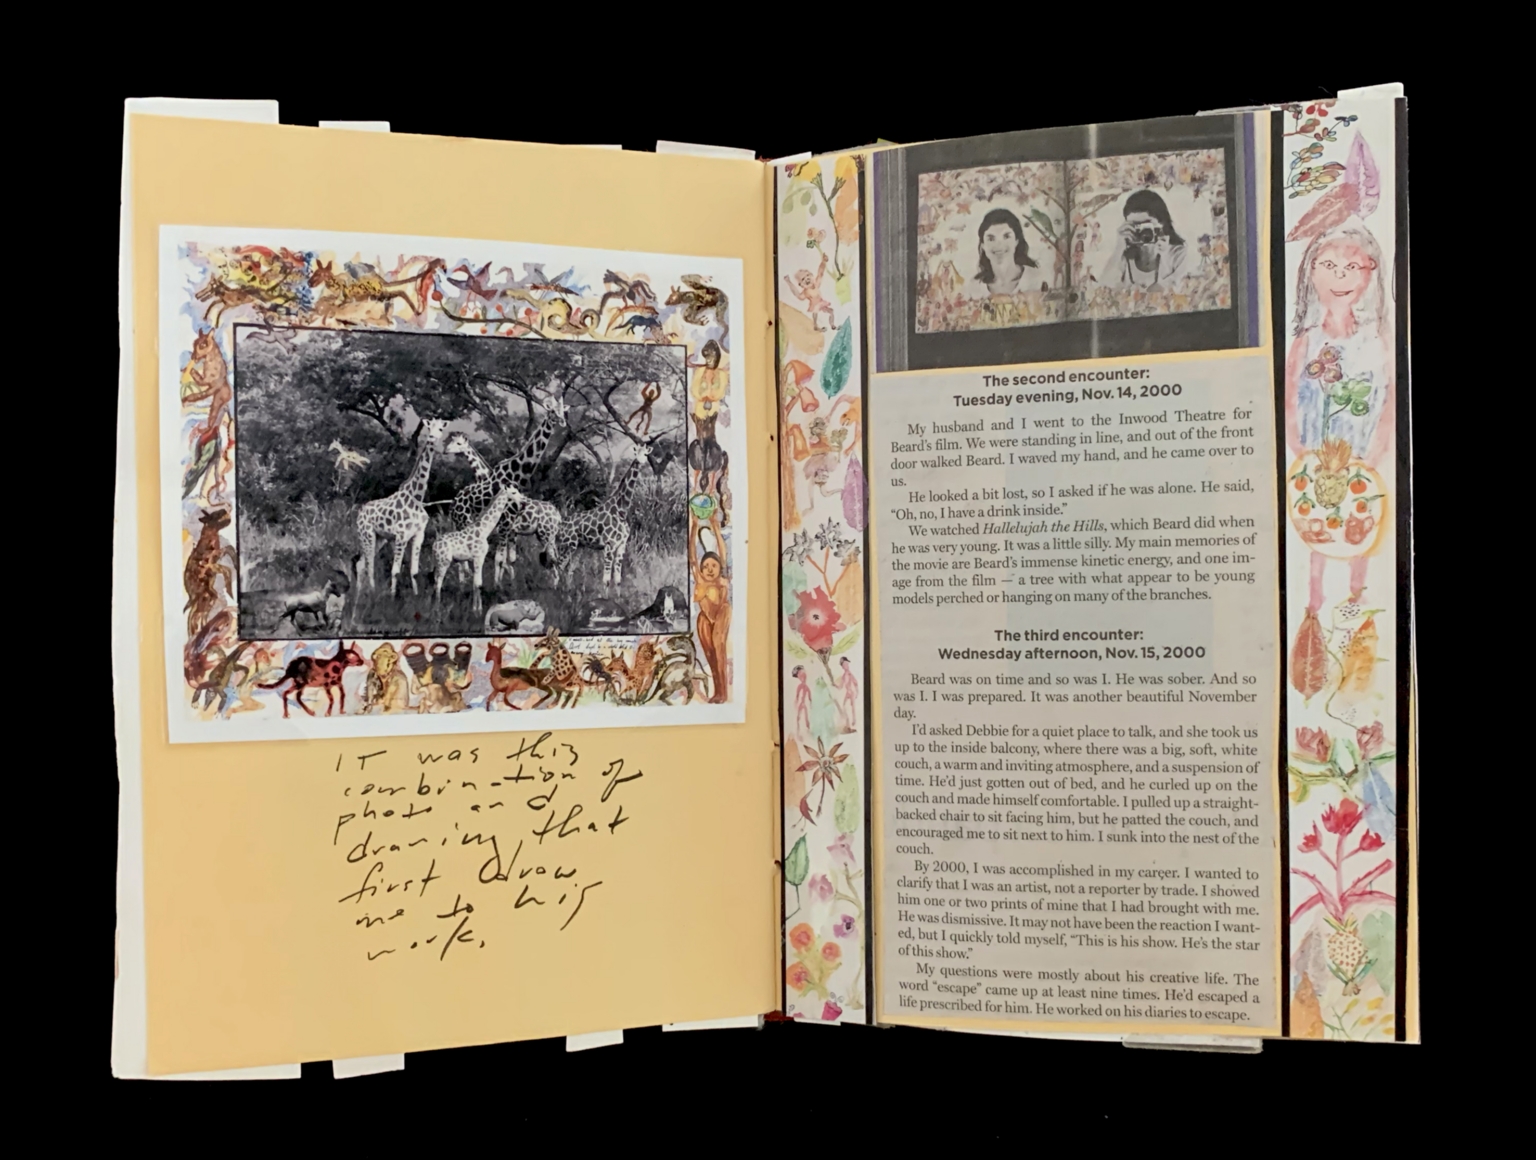 IT was this
combination of
photo and
drawing that
first drew
me to his
work.
The second encounter:
Tuesday evening, Nov. 14, 2000
My husband and I went to the Inwood Theatre for
Beard's film. We were standing in line, and out of the front
door walked Beard. I waved my hand, and he came over to
us.
He looked a bit lost, so I asked if he was alone. He said,
“Oh, no, I have a drink inside.”
We watched Hallelujah the Hills, which Beard did when
he was very young. It was a little silly. My main memories of
the movie are Beard's immense kinetic energy, and one im-
age from the film — a tree with what appear to be young
models perched or hanging on many of the branches.
The third encounter:
Wednesday afternoon, Nov. 15, 2000
Beard was on time and so was I. He was sober. And so
was I. I was prepared. It was another beautiful November
day.
I'd asked Debbie for a quiet place to talk, and she took us
up to the inside balcony, where there was a big, soft, white
couch, a warm and inviting atmosphere, and a suspension of
time. He'd just gotten out of bed, and he curled up on the
couch and made himself comfortable. I pulled up a straight-
backed chair to sit facing him, but he patted the couch, and
encouraged me to sit next to him. I sunk into the nest of the
couch.
By 2000, I was accomplished in my career. I wanted to
clarify that I was an artist, not a reporter by trade. I showed
him one or two prints of mine that I had brought with me.
He was dismissive. It may not have been the reaction I want-
ed, but I quickly told myself, “This is his show. He's the star
of this show.”
My questions were mostly about his creative life. The
word “escape” came up at least nine times. He'd escaped a
life prescribed for him. He worked on his diaries to escape.